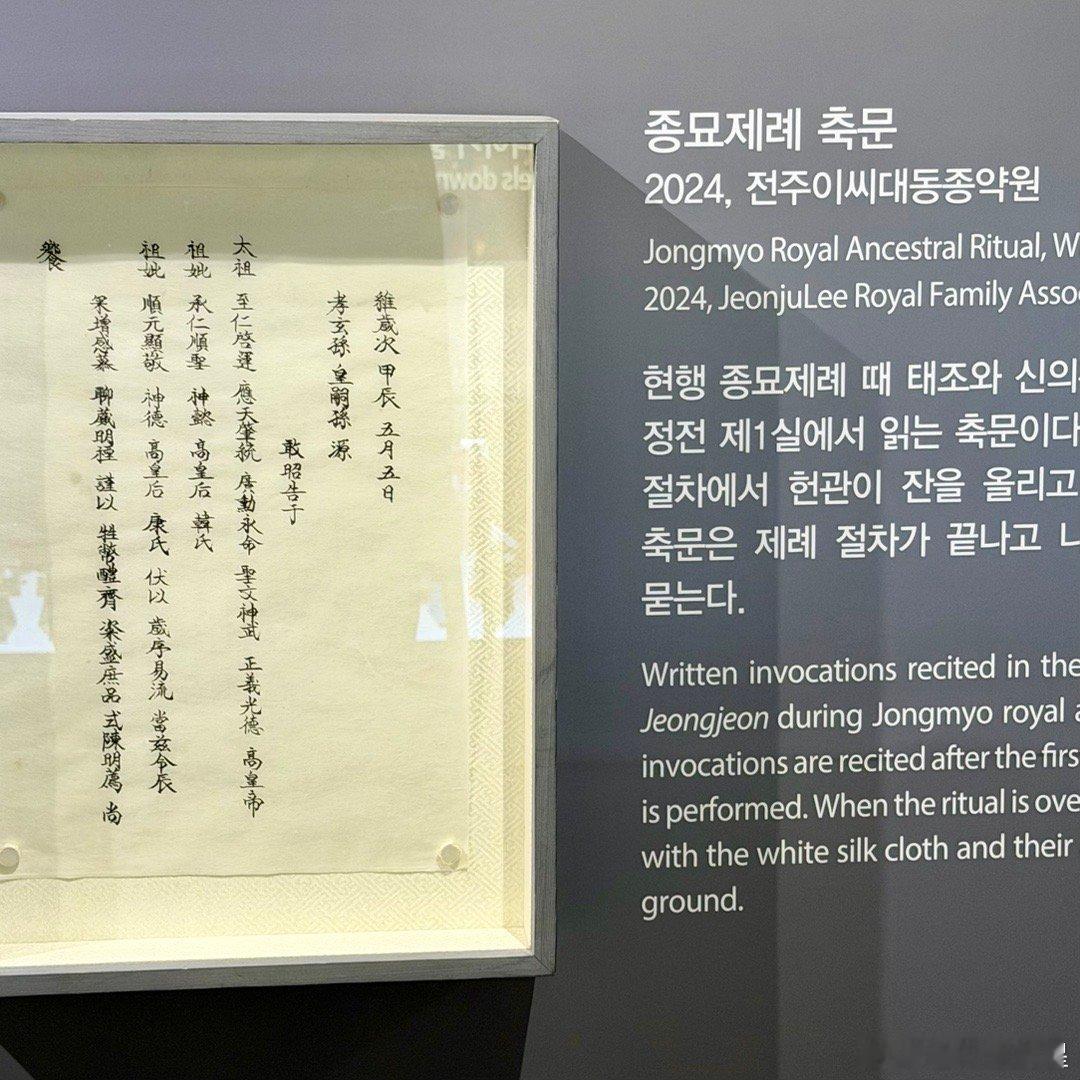 維歲次 甲辰 五月五日
孝玄孫 皇嗣孫 源
敢昭告于
太祖 至仁啓運 應天肇統 廣勳永命 聖文神武 正義光德 高皇帝
祖妣 承仁順聖 神懿 高皇后 韓氏
祖妣 順元顯敬 神德 高皇后 康氏 伏以 歲序易流 當玆令辰
增感慕 聊蕆明禋 謹以 牲幣醴齊 粢盛庶品 式陳明薦 尙
饗
종묘제례 축문
2024, 전주이씨대동종약원
Jongmyo Royal Ancestral Ritual, W
2024, JeonjuLee Royal Family Asso
현행 종묘제례 때 태조와 신의
정전 제1실에서 읽는 축문이다
절차에서 헌관이 잔을 올리고
축문은 제례 절차가 끝나고 나
묻는다.
Written invocations recited in the
Jeongjeon during Jongmyo royal a
invocations are recited after the firs
is performed. When the ritual is ove
with the white silk cloth and their
ground.